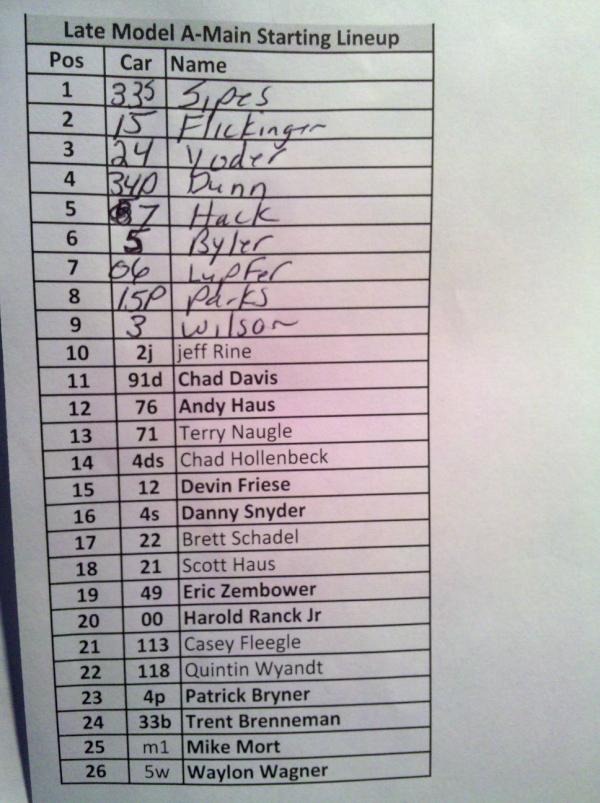 Late Model A-Main Starting Lineup
Pos Car Name
1 33S Sipes
2 15 Flickinger
3 24 Yoder
4 34P Dunn
5 7 Hack
6 5 Byler
7 06 Lupfer
8 15P Parks
9 3 Wilson
10 2j jeff Rine
11 91d Chad Davis
12 76 Andy Haus
13 71 Terry Naugle
14 4ds Chad Hollenbeck
15 12 Devin Friese
16 4s Danny Snyder
17 22 Brett Schadel
18 21 Scott Haus
19 49 Eric Zembower
20 00 Harold Ranck Jr
21 113 Casey Fleegle
22 118 Quintin Wyandt
23 4p Patrick Bryner
24 33b Trent Brenneman
25 m1 Mike Mort
26 5w Waylon Wagner